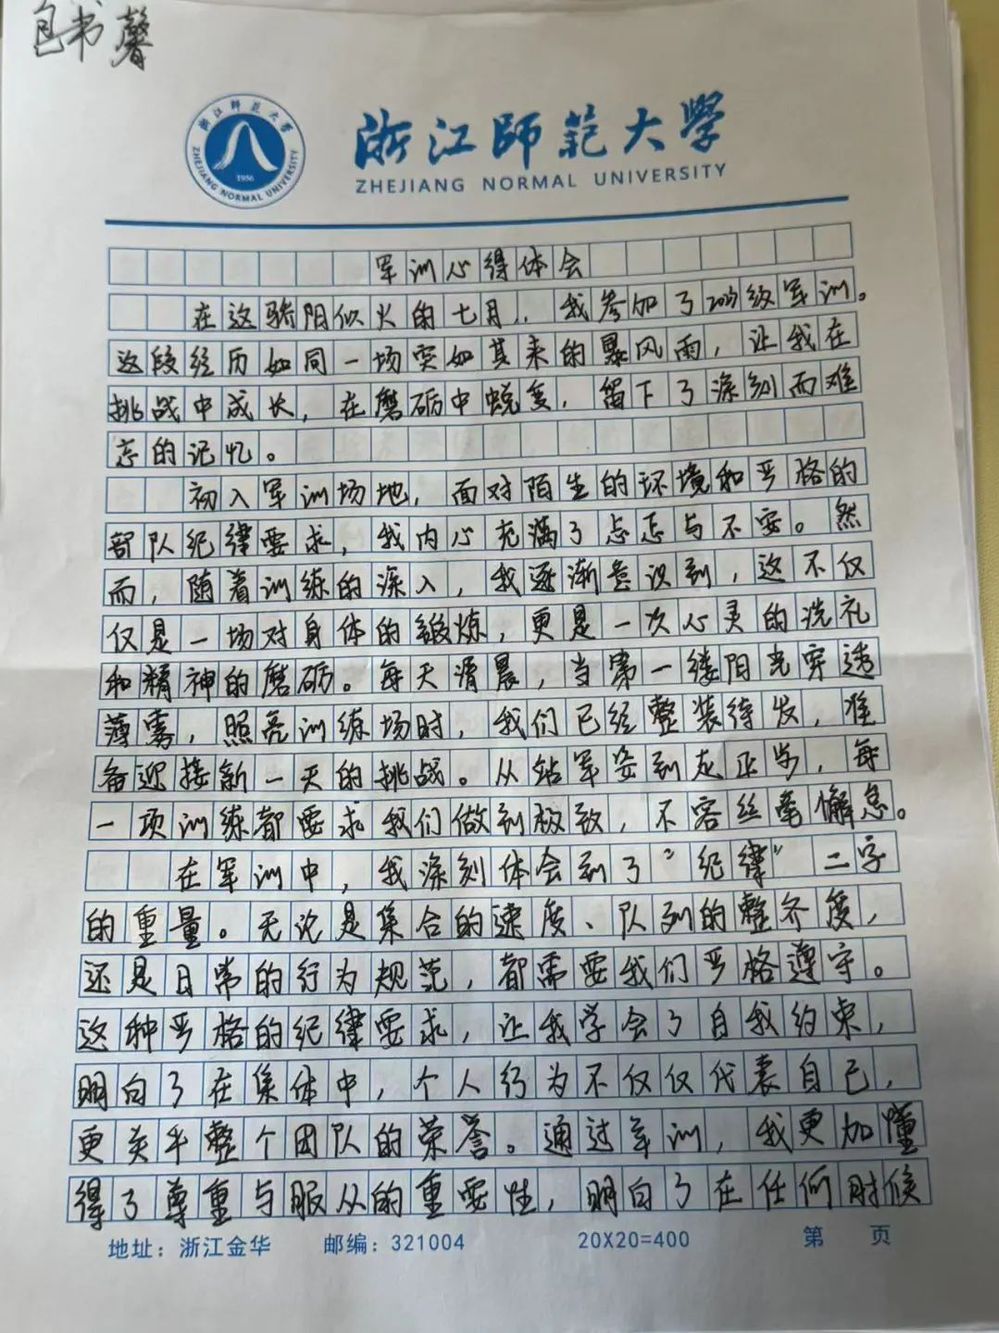 包书馨
浙江師范大學
ZHEJIANG NORMAL UNIVERSITY
浙江师范大学
1956
ZHEJIANG NORMAL UNIVERSITY
军训心得体会
在这骄阳似火的七月，我参加了2023级军训。
这段经历如同一场突如其来的暴风雨，让我在
挑战中成长，在磨砺中蜕变，留下了深刻而难
忘的记忆。
初入军训场地，面对陌生的环境和严格的
部队纪律要求，我内心充满了忐忑与不安。然
而，随着训练的深入，我逐渐意识到，这不仅
仅是一场对身体的锻炼，更是一次心灵的洗礼
和精神的磨砺。每天清晨，当第一缕阳光穿透
薄雾，照亮训练场时，我们已经整装待发，准
备迎接新一天的挑战。从站军姿到走正步，每
一项训练都要求我们做到极致，不容丝毫懈怠。
在军训中，我深刻体会到了“纪律”二字
的重量。无论是集合的速度、队列的整齐度，
还是日常的行为规范，都需要我们严格遵守。
这种严格的纪律要求，让我学会了自我约束，
明白了在集体中，个人行为不仅仅代表自己，
更关乎整个团队的荣誉。通过军训，我更加懂
得了尊重与服从的重要性，明白了在任何时候
地址：浙江金华 邮编：321004 20X20=400 第 页